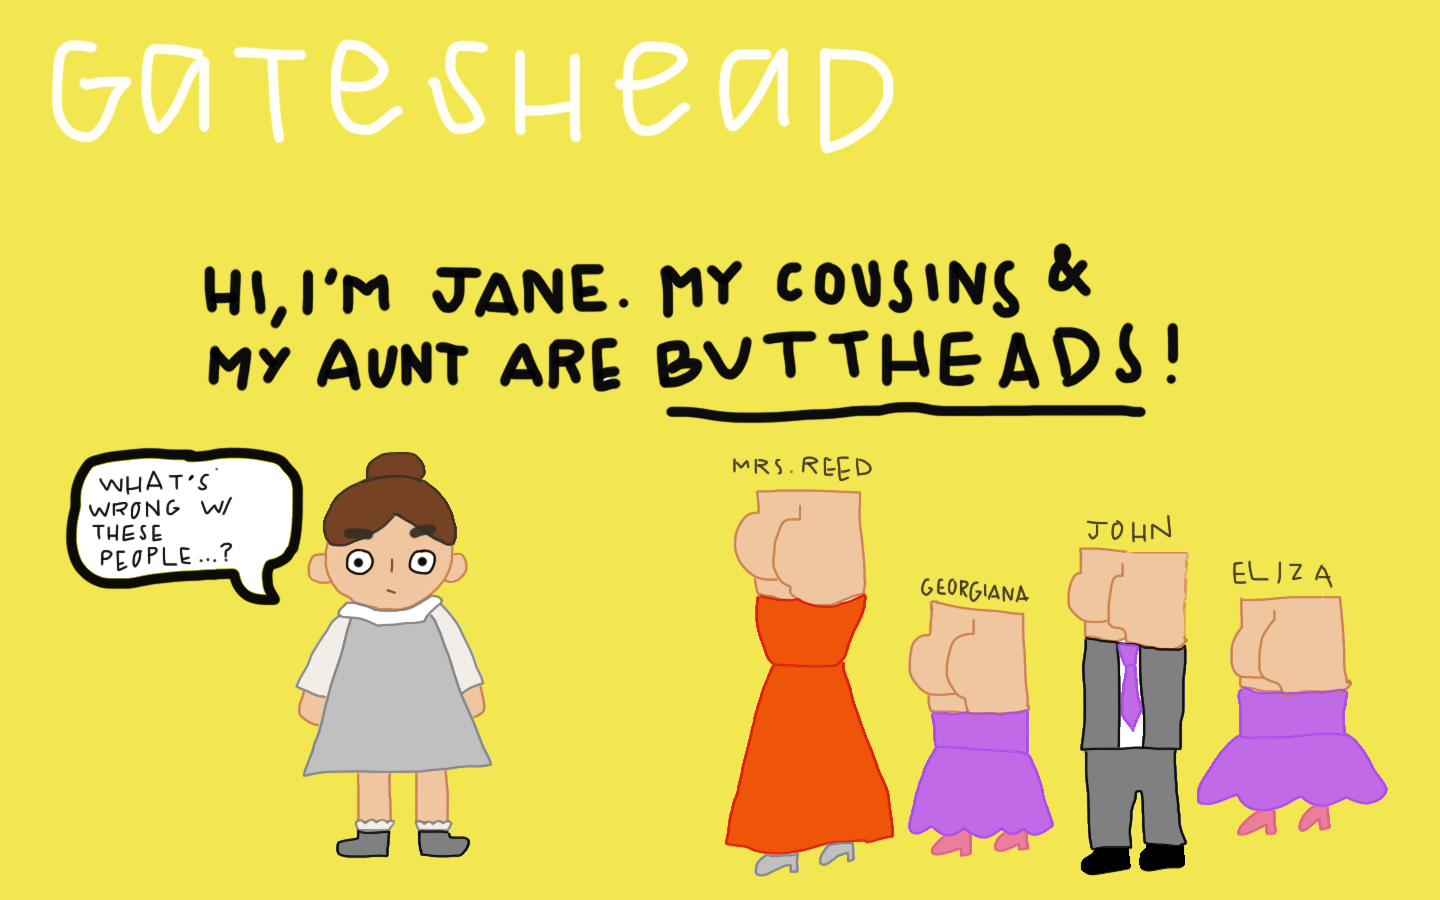 GaTesHeaD
HI, I'M JANE. MY COUSINS &
MY AUNT ARE BUTTHEADS!
WHAT'S
WRONG W/
THESE
PEOPLE...?
MRS. REED
GEORGIANA
JOHN
ELIZA